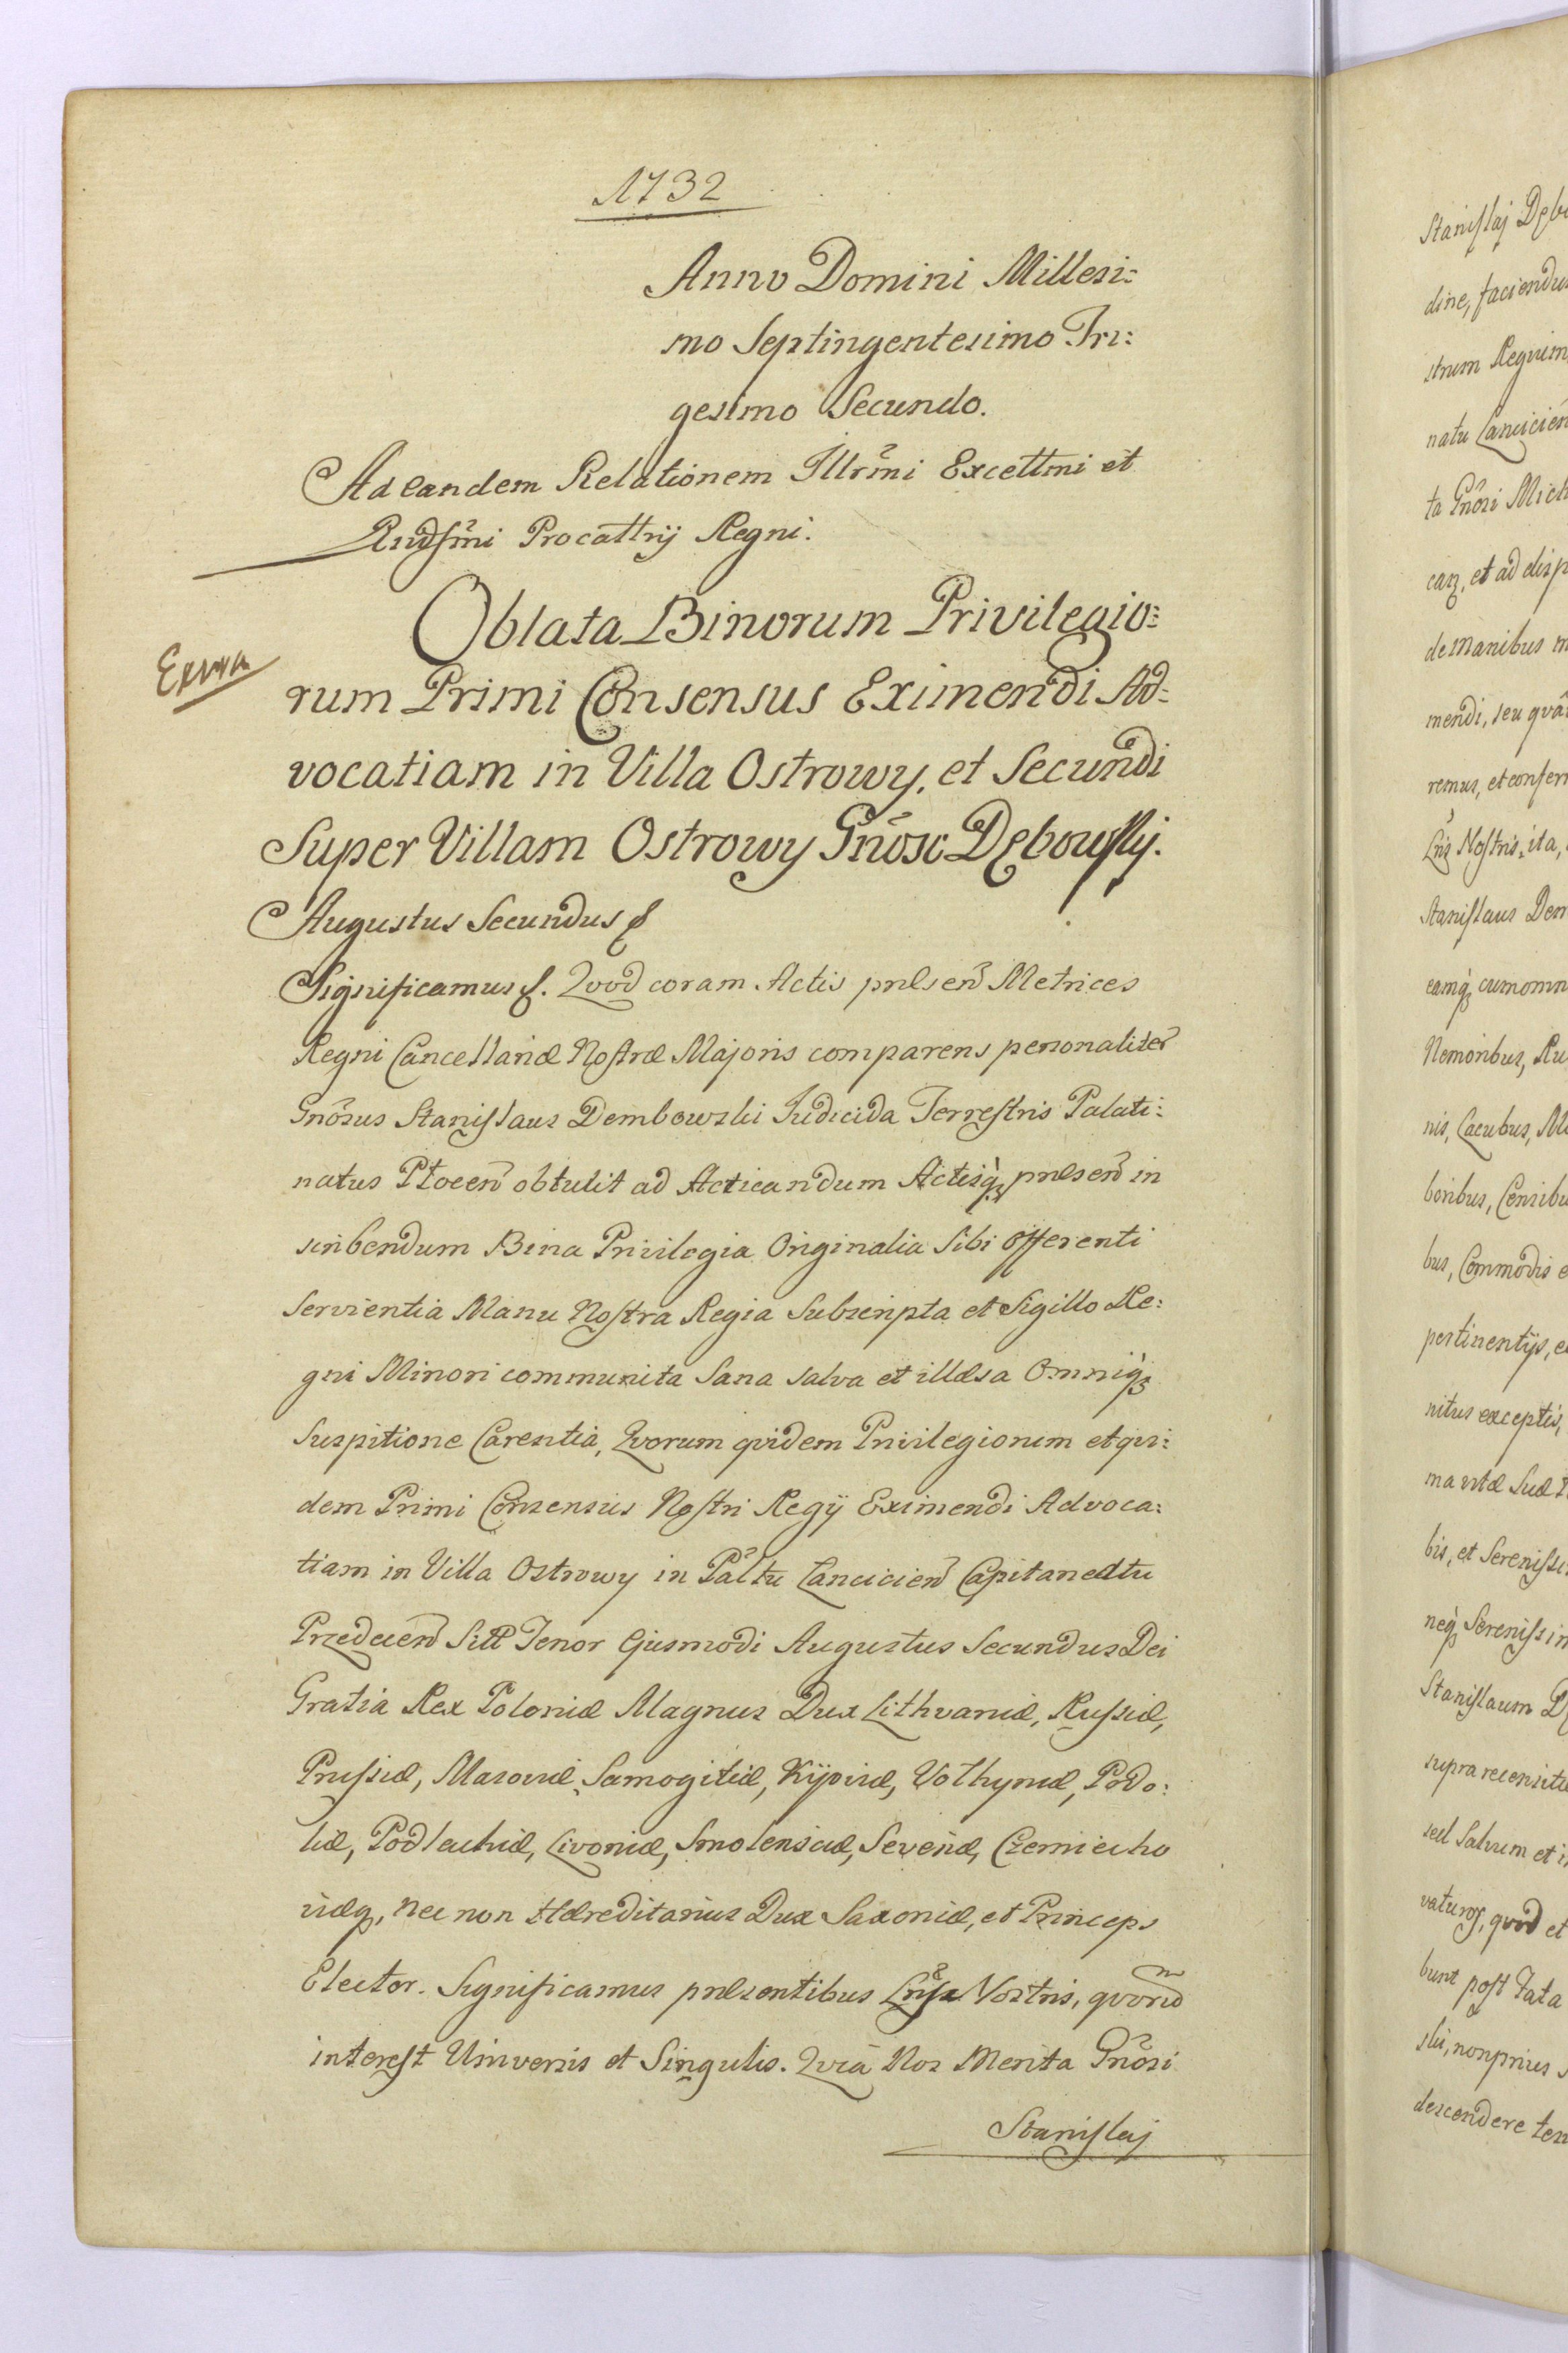 1732
Anno Domini Millesi:
mo Septingentesimo Tri:
gesimo Secundo.
Ad eandem Relationem Illrm̃i Excellmi et
Rndſm̃i Procallrij Regni.
Oblata Binorum Privilegio:
rum Primi Consensus Eximendi Ad:
vocatiam in Villa Ostrowy, et Secundi
Super Villam Ostrowy Gnõso Dębowſkj.
Augustus Secundus
Significamus. Qvod coram Actis pnlsen̄ Metrices
Regni Cancellariæ Noſtræ Majoris comparens personaliter
Gnõsus Staniſlaus Dembowski Judicida Terreſtris Palati:
natus Plocen̄ obtulit ad Acticandum Actisq̀ȝ pnlsen̄ in
scribendum Bina Privilegia Originalia Sibi Offerenti
Servientia Manu Noſtra Regia Subscripta et Sigillo Re:
gni Minori communita Sana salva et illæsa Omniq̀ȝ
Suspitione Carentia, Qvorum qvidem Privilegiorum et qvi:
dem Primi Consensus Noſtri Regij Eximendi Advoca:
tiam in Villa Ostrowy in Pal̃tu Lancicien̄ Capitaneatu
Przedecen̄ Sitt Tenor Ejusmodi Augustus Secundus Dei
Gratia Rex Poloniæ Magnus Dux Lithvaniæ, Ruſsiæ,
Pruſsiæ, Masoviæ, Samogitiæ, Kijoviæ, Volhyniæ, Podo:
liæ, Podlachiæ, Livoniæ, Smolensciæ, Severiæ, Czerniecho
viæqȝ, nec non Hæreditarius Dux Saxoniæ, et Princeps
Elector. Significamus pnlsentibus Lrĩs Nostris, qvorũ
intereſt Universis et Singulis. Qvia Nos Merita Gnõsi
Staniſlaj
Staniſlaj Dęb
dine, faciendu
strum Regium
natu Lancicien
ta Gnõsi Mich
caȝ, et ad disp
de Manibus m
mendi, seu qvâ
remus, et confer
Lrĩs Noſtris, ita,
Staniſlaus Dem
eamq̀ȝ cum omn
Nemoribus, Ru
nis, Lacubus, M
boribus, Censibu
bus, Commodis e
pertinentijs, e
nitus exceptis,
ma vitæ Suæ t
bis, et Sereniſsi
neq̀ȝ Sereniſsim
Staniſlaum D
supra recensitu
sed Salvum et i
vaturos, qvod et
bunt poſt Fata
ski, non prius s
descendere ten